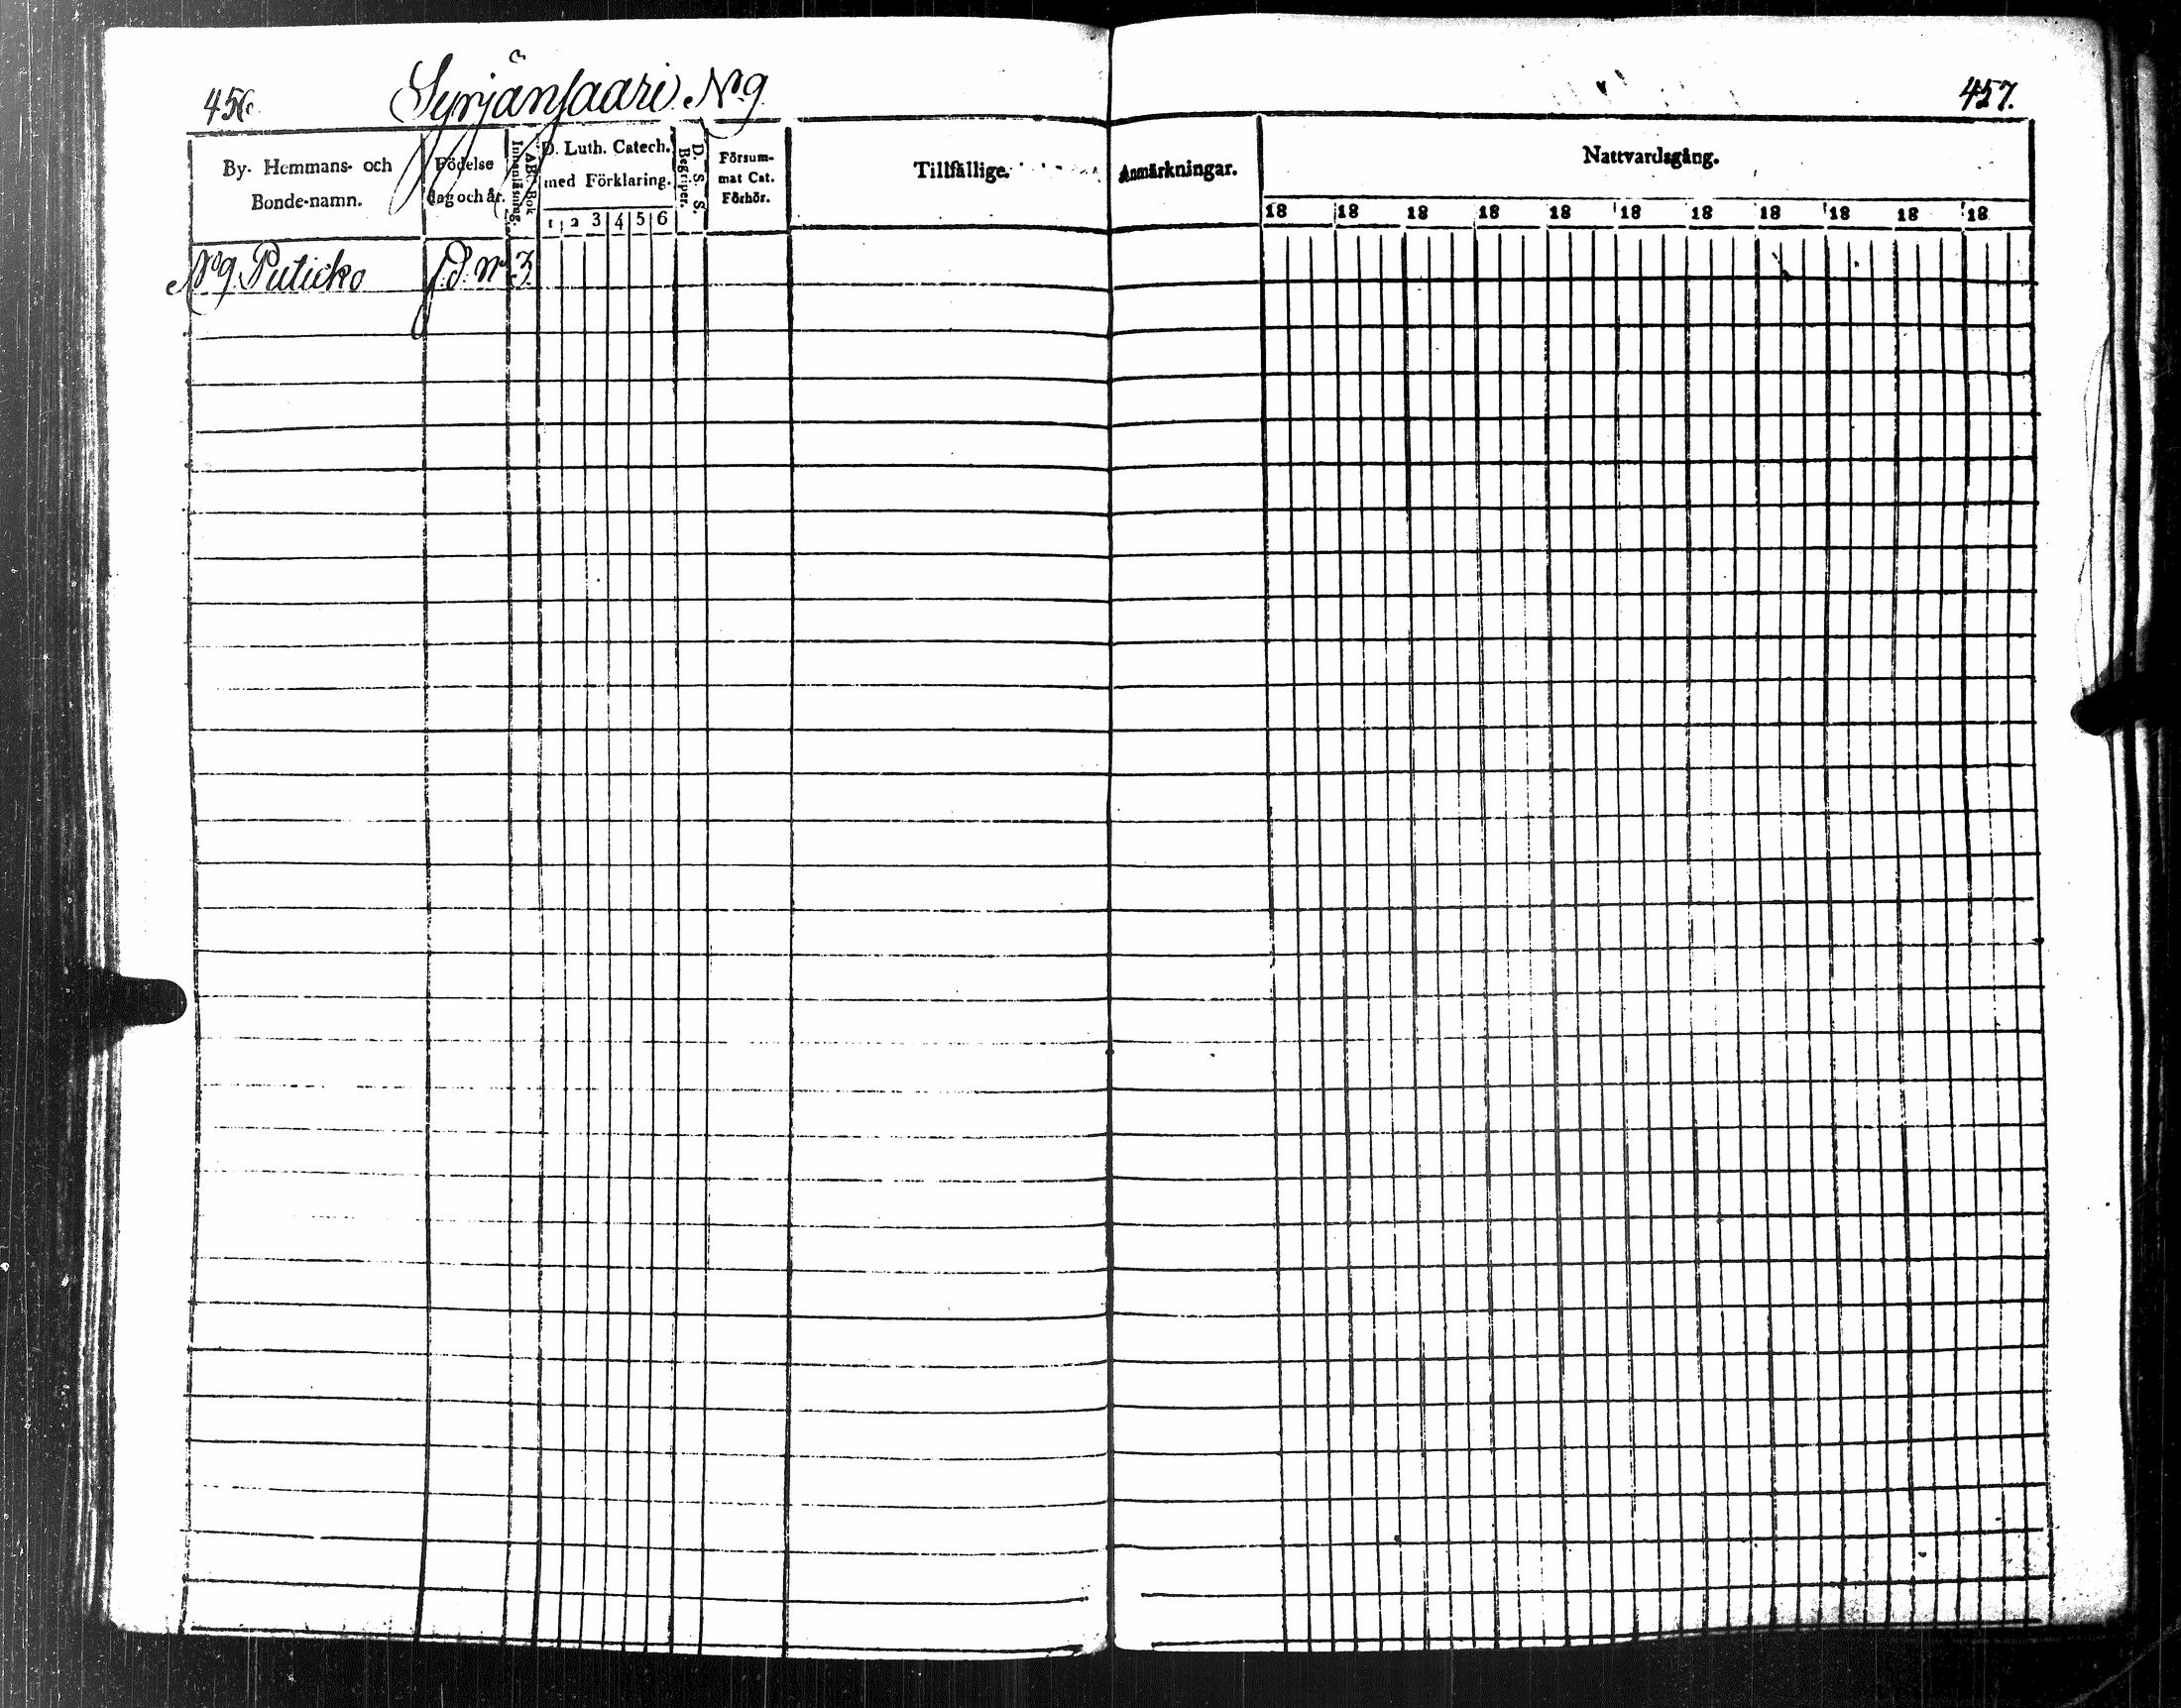 456.
Syrjänsaari No 9
457.
By- Hemmans- och Bonde-namn.
Födelse dag och år.
Innanläsning.
ABC-Bok
D. Luth. Catech. med Förklaring.
1 2 3 4 5 6
D. S. S. Begriper.
Försum- mat Cat. Förhör.
Tillfällige.
Anmärkningar.
Nattvardsgång.
18 18 18 18 18 18 18 18 18 18 18
No 9 Puticko